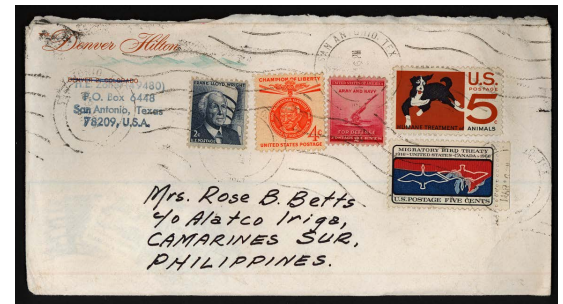 Denver Hilton
DENVER 2, COLORADO
P.O. Box 6448
San Antonio, Texas
78209, U.S.A.
SAN ANTONIO, TEX
FRANK LLOYD WRIGHT
2¢
U.S. POSTAGE
CHAMPION OF LIBERTY
4¢
UNITED STATES POSTAGE
ARMY AND NAVY
FOR DEFENSE
U.S.
POSTAGE
5
HUMANE TREATMENT OF ANIMALS
MIGRATORY BIRD TREATY
1916-UNITED STATES-CANADA-1966
U.S. POSTAGE FIVE CENTS
Mrs. Rose B. Betts
c/o Alatco Iriga,
CAMARINES SUR,
PHILIPPINES.